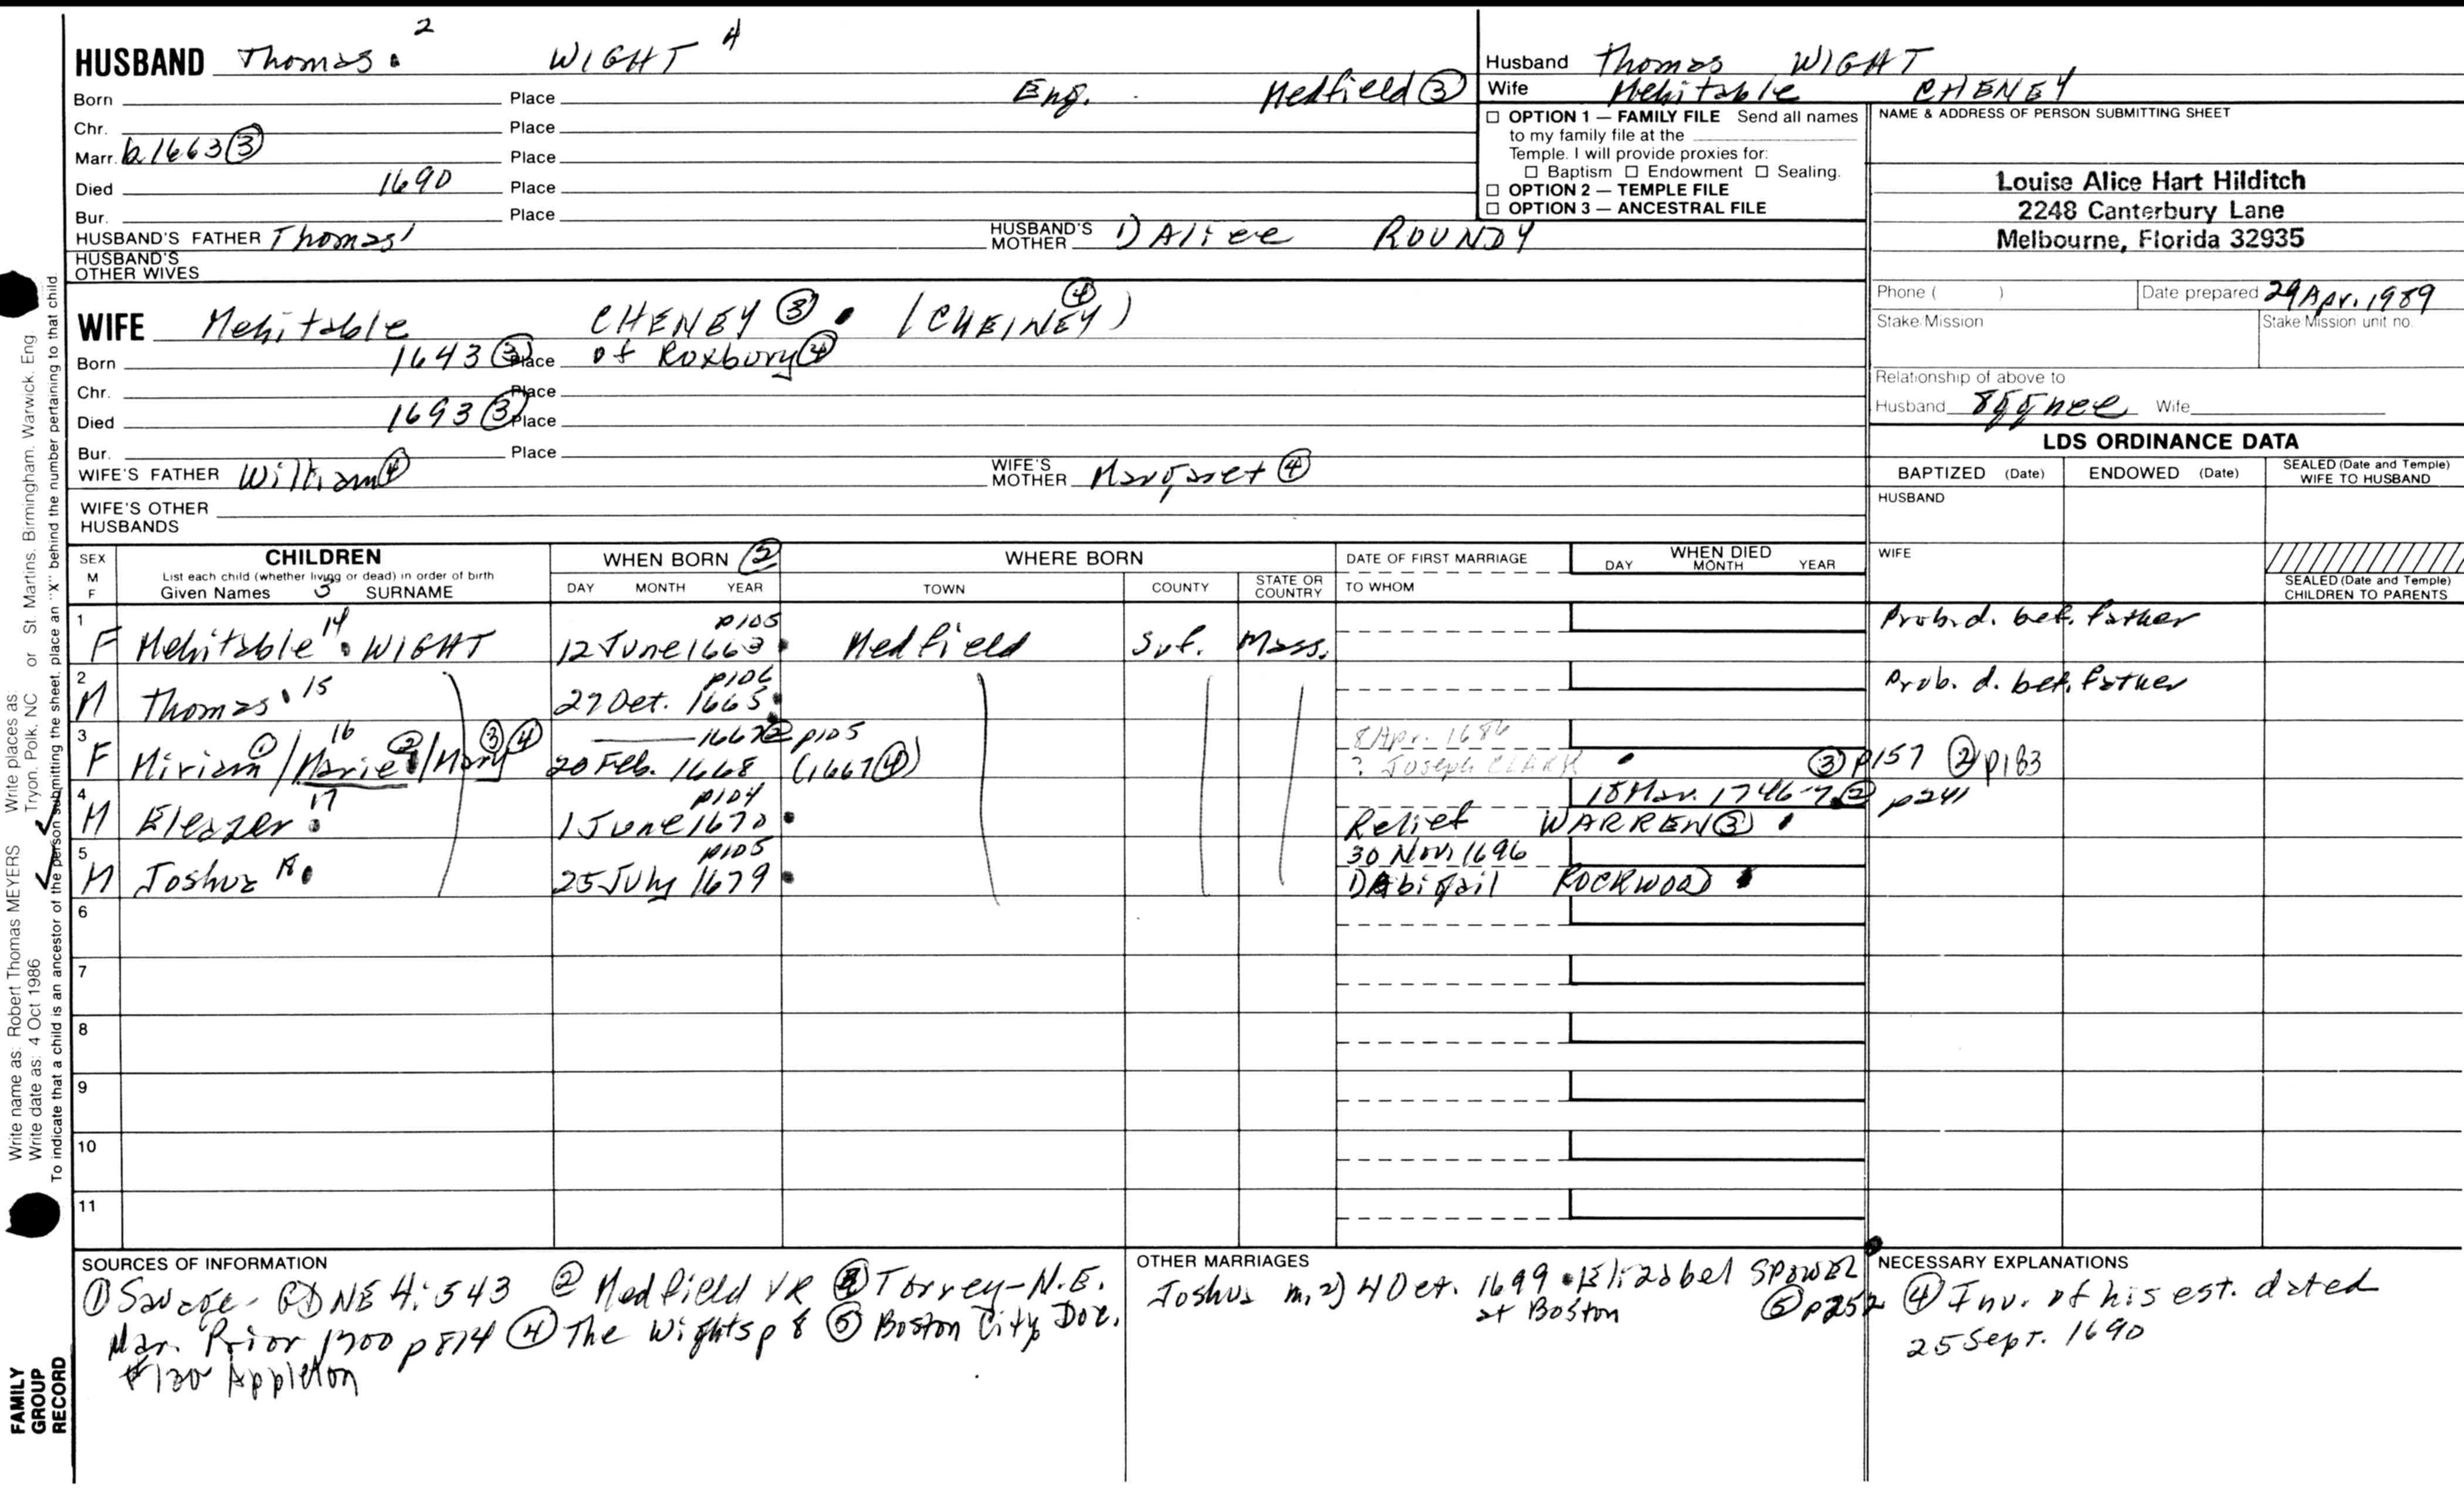 HUSBAND Thomas 2 WIGHT 4
Born Place Eng. Medfield ③
Chr. Place
Marr. b 1663 ③ Place
Died 1690 Place
Bur. Place
HUSBAND'S FATHER Thomas 1 HUSBAND'S MOTHER 1) Alice ROUNDY
HUSBAND'S OTHER WIVES
Husband Thomas WIGHT
Wife Mehitable CHENEY
☐ OPTION 1 — FAMILY FILE Send all names
to my family file at the
Temple. I will provide proxies for:
☐ Baptism ☐ Endowment ☐ Sealing.
☐ OPTION 2 — TEMPLE FILE
☐ OPTION 3 — ANCESTRAL FILE
NAME & ADDRESS OF PERSON SUBMITTING SHEET
Louise Alice Hart Hilditch
2248 Canterbury Lane
Melbourne, Florida 32935
Phone ( ) Date prepared 29 Apr. 1989
Stake/Mission Stake/Mission unit no.
Relationship of above to
Husband 8ggnee Wife
WIFE Mehitable CHENEY ③ (CHEINEY) ④
Born 1643 ③ Place of Roxbury ④
Chr. Place
Died 1693 ③ Place
Bur. Place
WIFE'S FATHER William ④ WIFE'S MOTHER Margaret ④
WIFE'S OTHER
HUSBANDS
LDS ORDINANCE DATA
BAPTIZED (Date) ENDOWED (Date) SEALED (Date and Temple) WIFE TO HUSBAND
HUSBAND
WIFE
SEALED (Date and Temple) CHILDREN TO PARENTS
SEX M F
CHILDREN
List each child (whether living or dead) in order of birth
Given Names 3 SURNAME
WHEN BORN ②
DAY MONTH YEAR
WHERE BORN
TOWN COUNTY STATE OR COUNTRY
DATE OF FIRST MARRIAGE
TO WHOM
WHEN DIED
DAY MONTH YEAR
1 p105 Prob. d. bef. father
F Mehitable 14 WIGHT 12 June 1663 Medfield Suf. Mass.
2 p106 Prob. d. bef. father
M Thomas 15 27 Oct. 1665
3 16 1667 ② p105 8 Apr. 1686
F Miriam ① / Marie ② / Mary ③ ④ 20 Feb. 1668 (1667 ④) ? Joseph CLARK ③ p157 ② p183
4 p104 18 Mar. 1746-7 ② p241
M Eleazer 17 1 June 1670 Relief WARREN ③
5 p105 30 Nov. 1696
M Joshua 18 25 July 1679 1) Abigail ROCKWOOD
6
7
8
9
10
11
SOURCES OF INFORMATION
① Savage - GDNE 4:543 ② Medfield VR ③ Torrey-N.E.
Mar. Prior 1700 p 814 ④ The Wights p 8 ⑤ Boston City Doc.
#130 Appleton
OTHER MARRIAGES
Joshua m. 2) 4 Oct. 1699 Elizabel SPOWEL
at Boston ⑤ p252
NECESSARY EXPLANATIONS
④ Inv. of his est. dated
25 Sept. 1690
Write name as: Robert Thomas MEYERS Write places as Tryon, Polk, NC or St Martins, Birmingham, Warwick, Eng
Write date as: 4 Oct 1986
To indicate that a child is an ancestor of the person submitting the sheet, place an "X" behind the number pertaining to that child
FAMILY
GROUP
RECORD